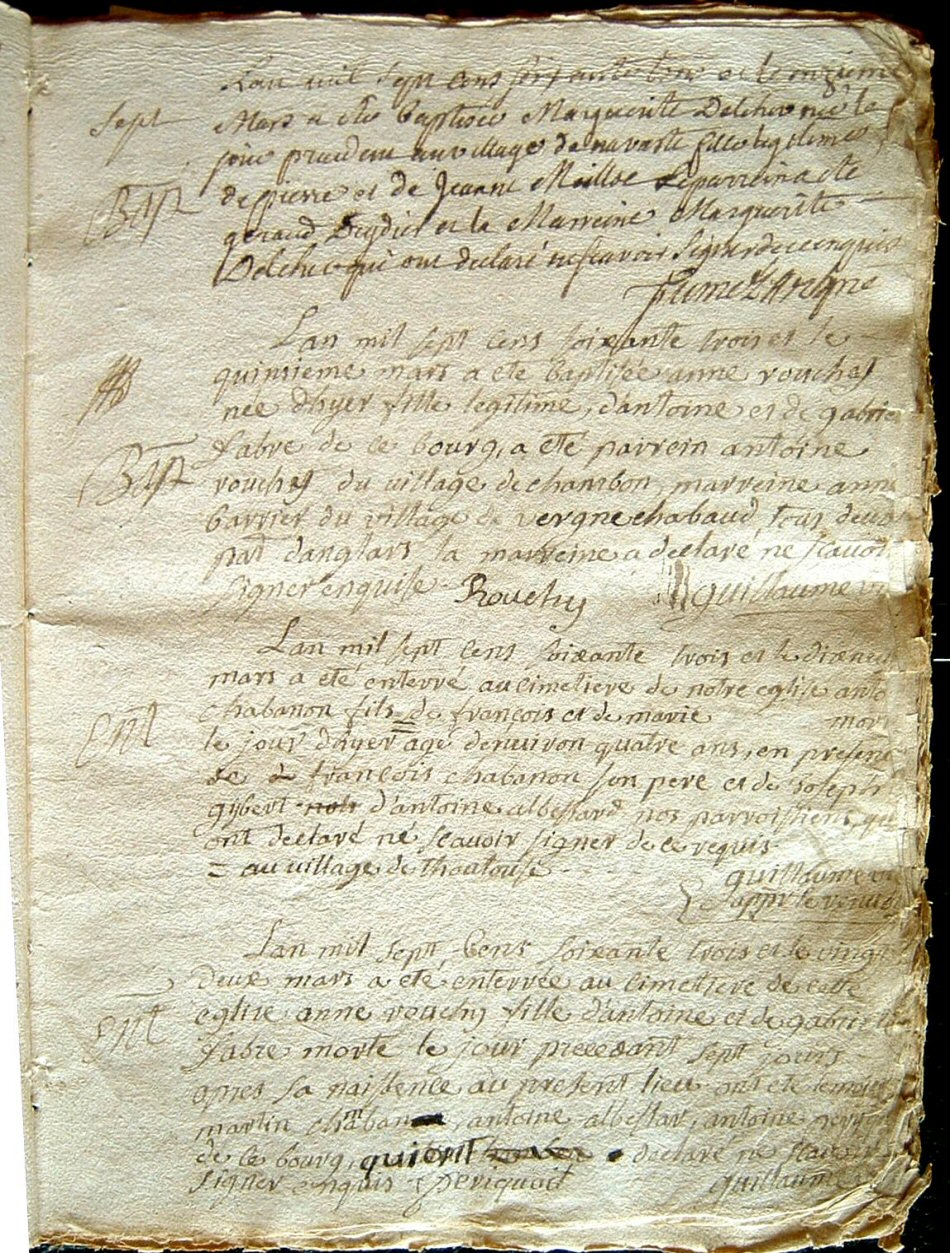 Lan mil sept cens soixante trois et le onzieme
Sept
Mars a eté baptisée Marguerite Delcher née le
jour precedent au village de navaste fille legitime
Bap
de pierre et de Jeanne Meillac le parrein a eté
geraud Deydier et la Marreine Marguerite
Delcher qui ont declaré ne scavoir signer de ce enquis
Lan mil sept cens soixante trois et le
quinsieme mars a eté baptisée anne rouchy
née d'hyer fille legitime, d'antoine et de gabrie
Bap
fabre de ce bourg, a eté parrein antoine
rouchy du village de chambon, marreine anne
barrier du village de vergne chabaud tous deux
par danglars la marreine a declaré ne scavoi
signer enquise Rouchy guillaume
Lan mil sept cens soixante trois et le dixneuf
mars a eté enterré au cimetiere de notre eglise anto
chabanon fils = de françois et de marie mort
Ent
le jour d'hyer agé denviron quatre ans, en presen
ce de françois chabanon son pere et de joseph
gybert d'antoine albessard nos parroissiens, qui
ont declaré ne scavoir signer de ce requis
= au village de thoulouse guillaume
Lan mil sept cens soixante trois et le vingt
Deux mars a eté enterrée au cimetiere de cette
Ent
eglise anne rouchy fille d'antoine et de gabriel
fabre morte le jour precedant sept jours
apres sa naissence au present lieu ont eté temoins
martin antoine albessar, antoine
de ce bourg, qui ont declaré ne scavoir
signer enquis guillaume